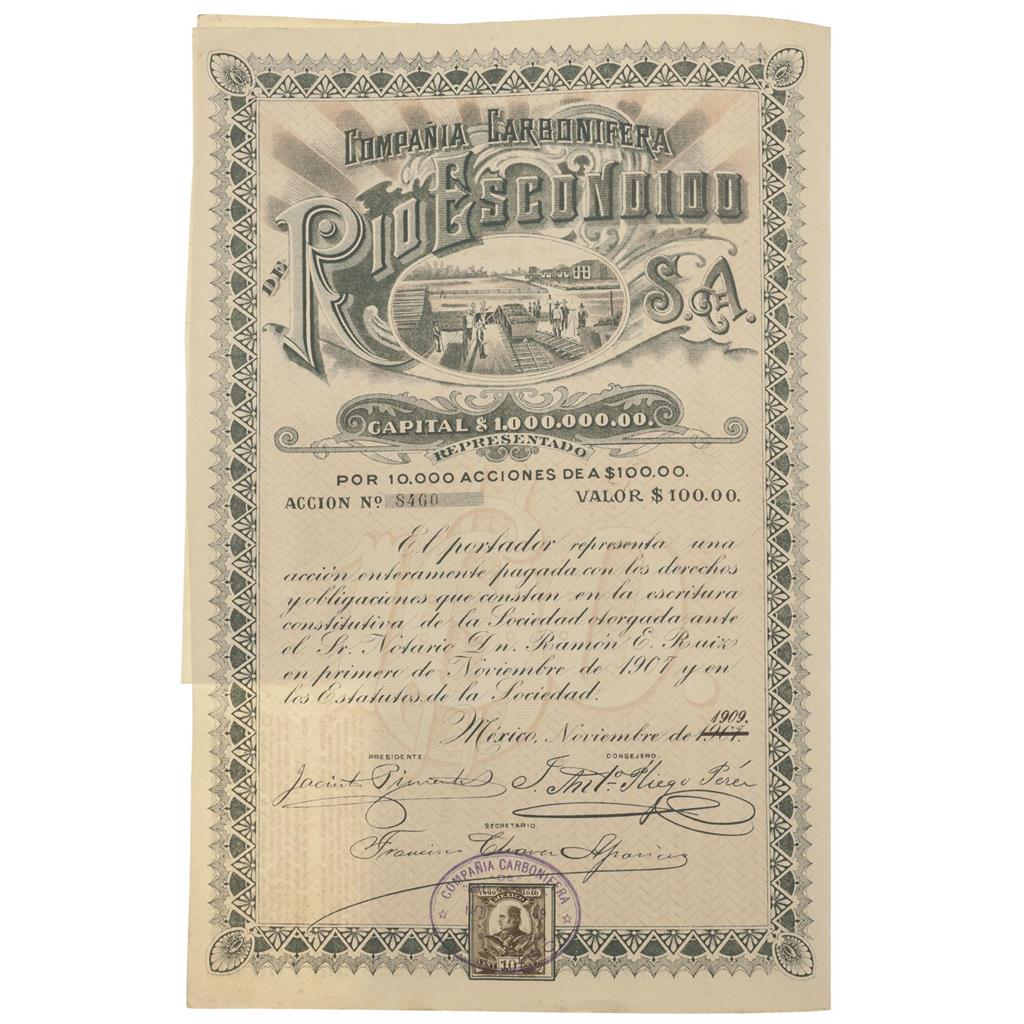 COMPAÑIA CARBONIFERA
DE RIO ESCONDIDO
S.A.
CAPITAL $ 1.000.000.00.
REPRESENTADO
POR 10.000 ACCIONES DE A $100.00.
ACCION Nº 8460 VALOR $100.00.
El portador representa una
acción enteramente pagada con los derechos
y obligaciones que constan en la escritura
constitutiva de la Sociedad otorgada ante
el Sr. Notario Dn. Ramón E. Ruiz
en primero de Noviembre de 1907 y en
los Estatutos de la Sociedad.
1909.
México, Noviembre de 1907.
PRESIDENTE. CONSEJERO.
Jacint Pimentel J. Antº. Pliego Pérez
SECRETARIO.
Francisco Chavez Aparicio
COMPAÑIA CARBONIFERA
DE
MEXICO
10